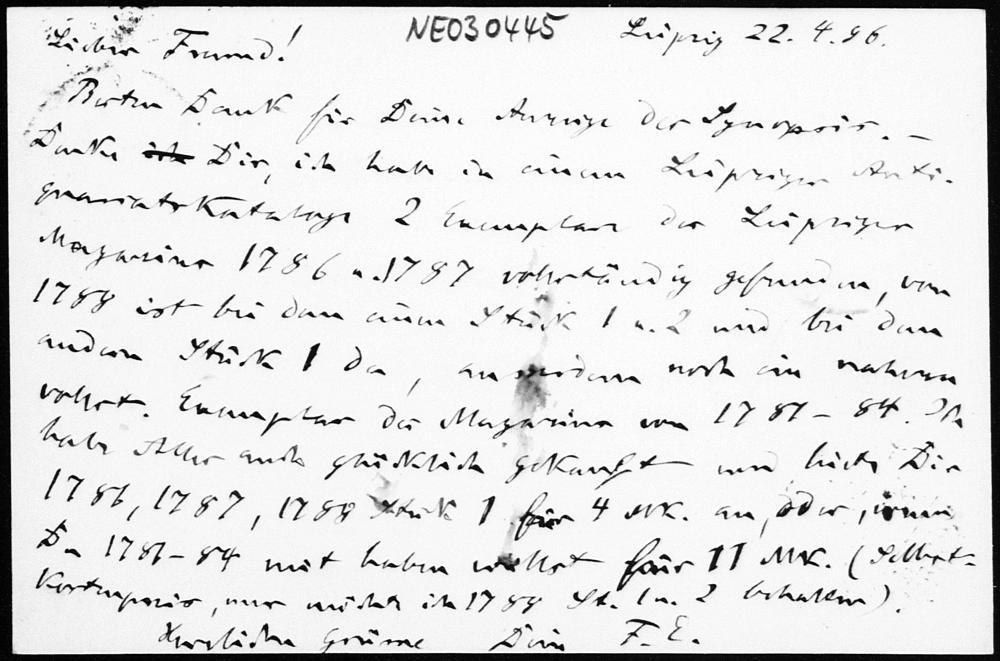 NE030445
Leipzig 22. 4. 96.
Lieber Freund!
Besten Dank für Deine Anzeige der Synopsis. –
Denke Dir, ich habe in einem Leipziger Anti-
quariatskataloge 2 Exemplare des Leipziger
Magazins 1786 u. 1787 vollständig gefunden, vom
1788 ist bei dem einen Stück 1 u. 2 und bei dem
andern Stück 1 da, ausserdem noch ein
vollst. Exemplar des Magazins von 1781 – 84. Ich
habe Alles auch glücklich gekauft und biete Dir
1786, 1787, 1788 Stück 1 für 4 Mk. an, oder, wenn
Du 1781–84 mit haben willst für 11 Mk. (Selbst-
kostenpreis, nur möchte ich 1788 St. 1 u. 2 behalten).
Herzlichen Grüsse Dein F. E.